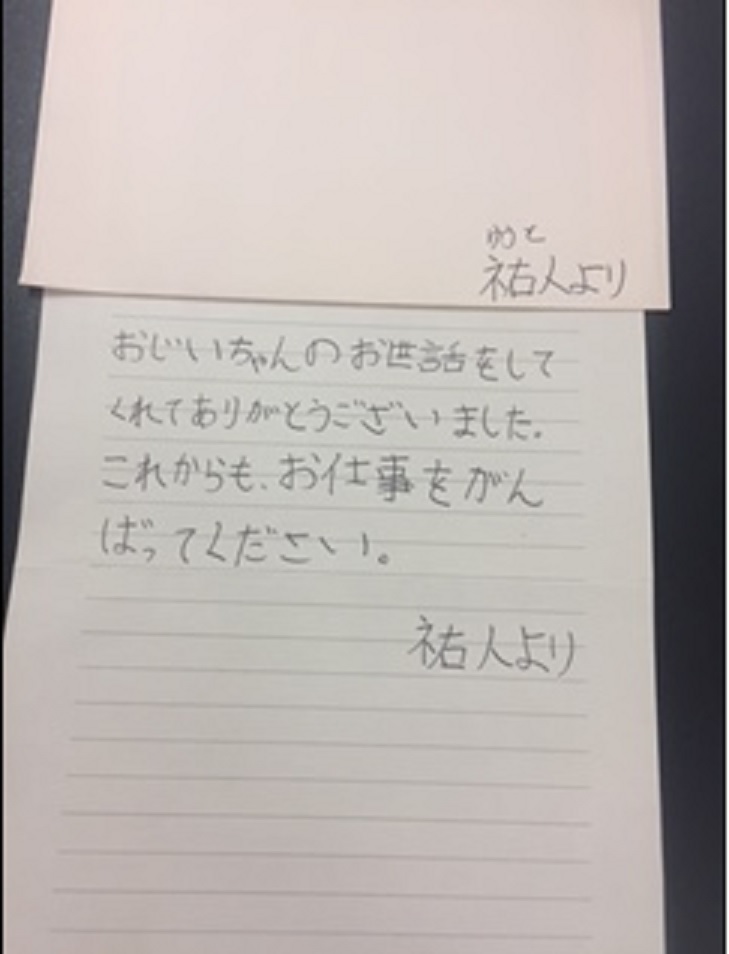 ゆうと
祐人より
おじいちゃんのお世話をして
くれてありがとうございました。
これからも、お仕事をがん
ばってください。
祐人より